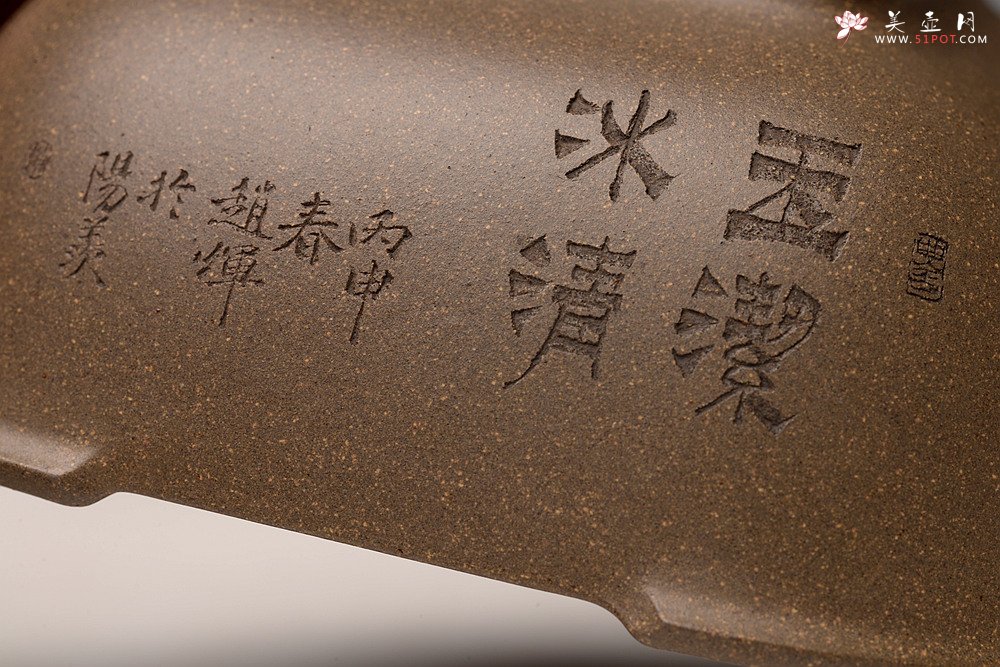 美壶网
WWW.51POT.COM
玉潔
冰清
丙申
春
趙
於
陽羨